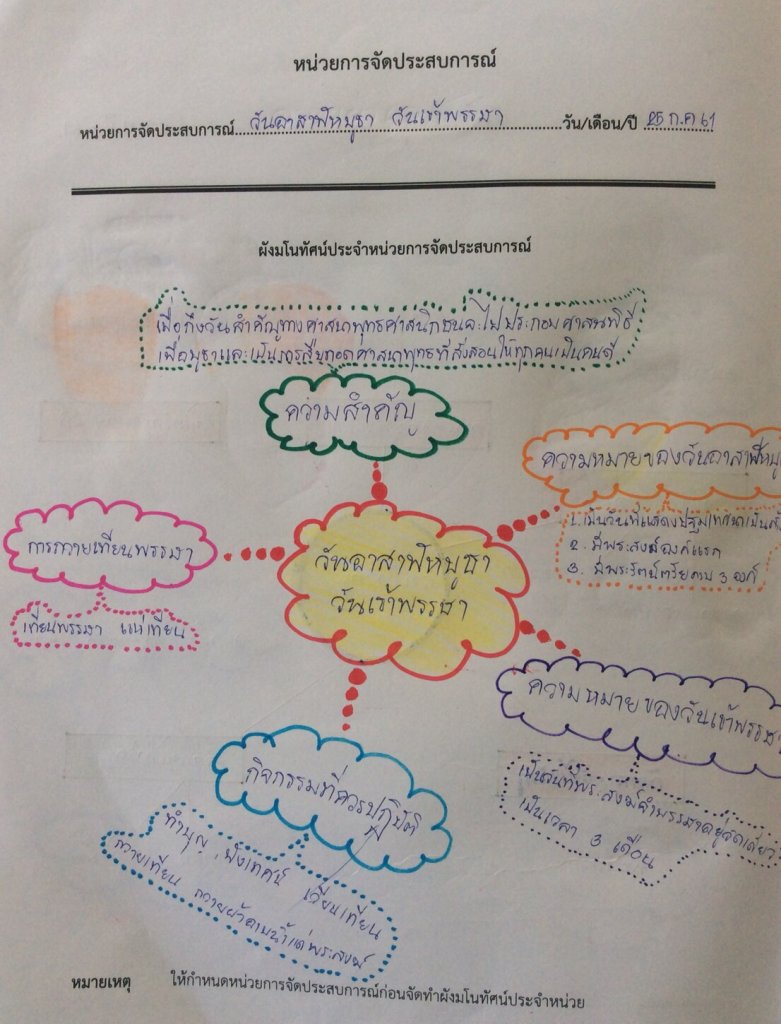 หน่วยการจัดประสบการณ์
หน่วยการจัดประสบการณ์ วันอาสาฬหบูชา วันเข้าพรรษา วัน/เดือน/ปี 25 ก.ค 61
ผังมโนทัศน์ประจำหน่วยการจัดประสบการณ์
เมื่อถึงวันสำคัญทางศาสนาพุทธศาสนิกชนจะไปประกอบศาสนพิธี
เพื่อบูชาและเป็นการสืบทอดศาสนาพุทธที่สั่งสอนให้ทุกคนเป็นคนดี
ความสำคัญ
ความหมายของวันอาสาฬหบู
1. เป็นวันที่แสดงปฐมเทศนาเป็น
2. มีพระสงฆ์องค์แรก
3. มีพระรัตนตรัยครบ 3 องค์
การถวายเทียนพรรษา
เทียนพรรษา แห่เทียน
วันอาสาฬหบูชา
วันเข้าพรรษา
ความหมายของวันเข้าพรรษา
เป็นวันที่พระสงฆ์จำพรรษาอยู่วัดเดียว
เป็นเวลา 3 เดือน
กิจกรรมที่ควรปฏิบัติ
ทำบุญ ฟังเทศน์ เวียนเทียน
ถวายเทียน ถวายผ้าอาบน้ำแด่พระสงฆ์
หมายเหตุ ให้กำหนดหน่วยการจัดประสบการณ์ก่อนจัดทำผังมโนทัศน์ประจำหน่วย